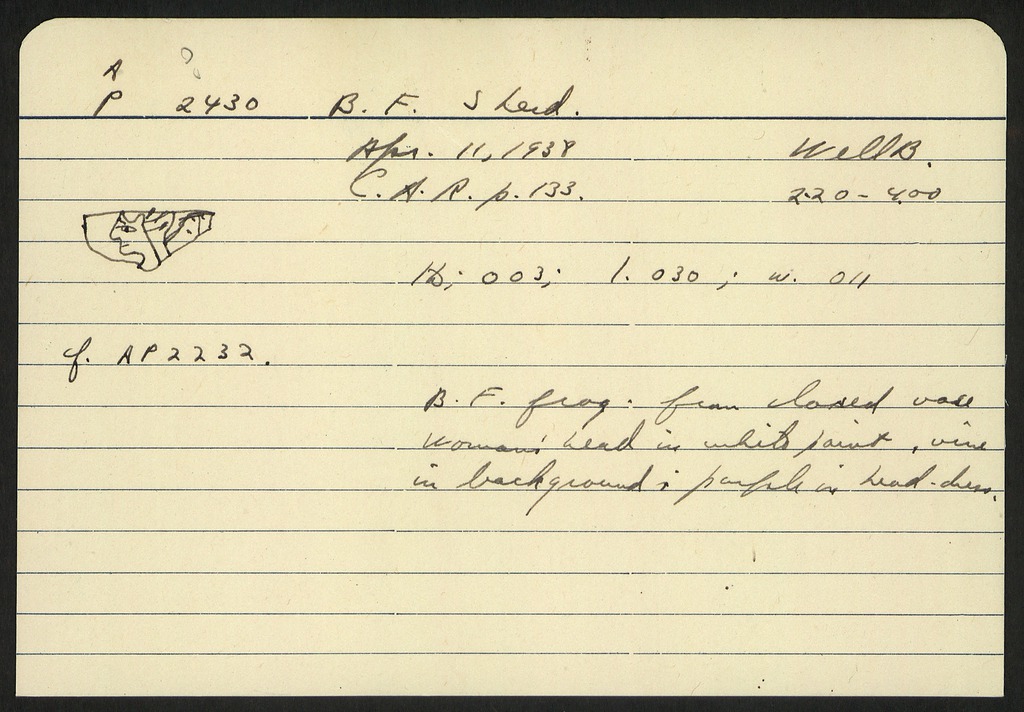 A
P 2430 B. F. Sherd.
Apr. 11, 1938 Well B.
C. A. R. p. 133. 2.20 - 4.00
Th; 003; l. 030; w. 011
cf. AP 2232.
B. F. frag. from closed vase
woman's head in white paint, vine
in background; purple in head-dress.